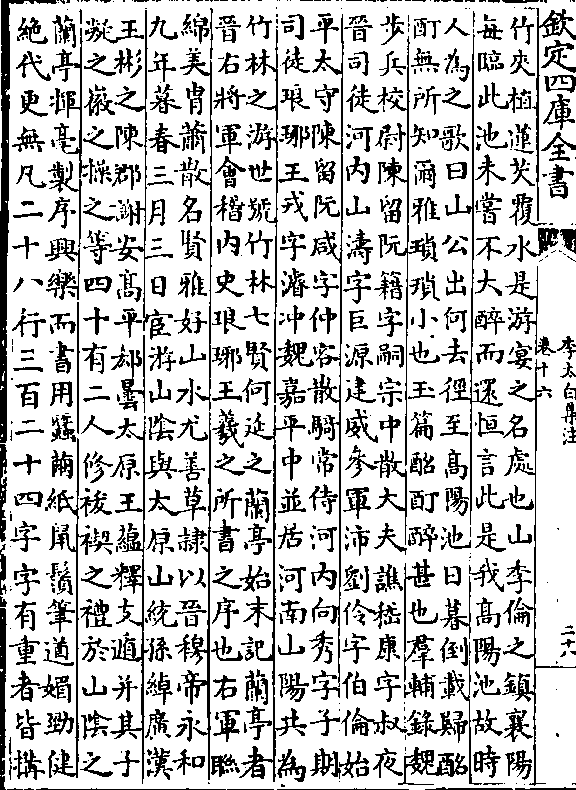 欽定四庫全書
李太白集注
卷十六
竹夾植蓮芡覆水是游宴之名處也山李倫之鎮襄陽
每臨此池未嘗不大醉而還恒言此是我高陽池故時
人為之歌曰山公出何去徑至高陽池日暮倒載歸酩
酊無所知爾雅瑣瑣小也玉篇酩酊醉甚也羣輔錄魏
步兵校尉陳留阮籍字嗣宗中散大夫譙嵇康字叔夜
晉司徒河内山濤字巨源建威參軍沛劉伶字伯倫始
平太守陳留阮咸字仲容散騎常侍河内向秀字子期
司徒琅琊王戎字濬冲魏嘉平中並居河南山陽共為
竹林之游世號竹林七賢何延之蘭亭始末記蘭亭者
晉右將軍會稽内史琅琊王羲之所書之序也右軍聯
綿美胄蕭散名賢雅好山水尤善草隷以晉穆帝永和
九年暮春三月三日宦游山陰與太原山統孫綽廣漢
王彬之陳郡謝安高平郄曇太原王藴釋支遁并其子
凝之徽之操之等四十有二人修祓禊之禮於山陰之
蘭亭揮毫製序興樂而書用蠶繭紙鼠鬚筆遒媚勁健
絶代更無凡二十八行三百二十四字字有重者皆搆